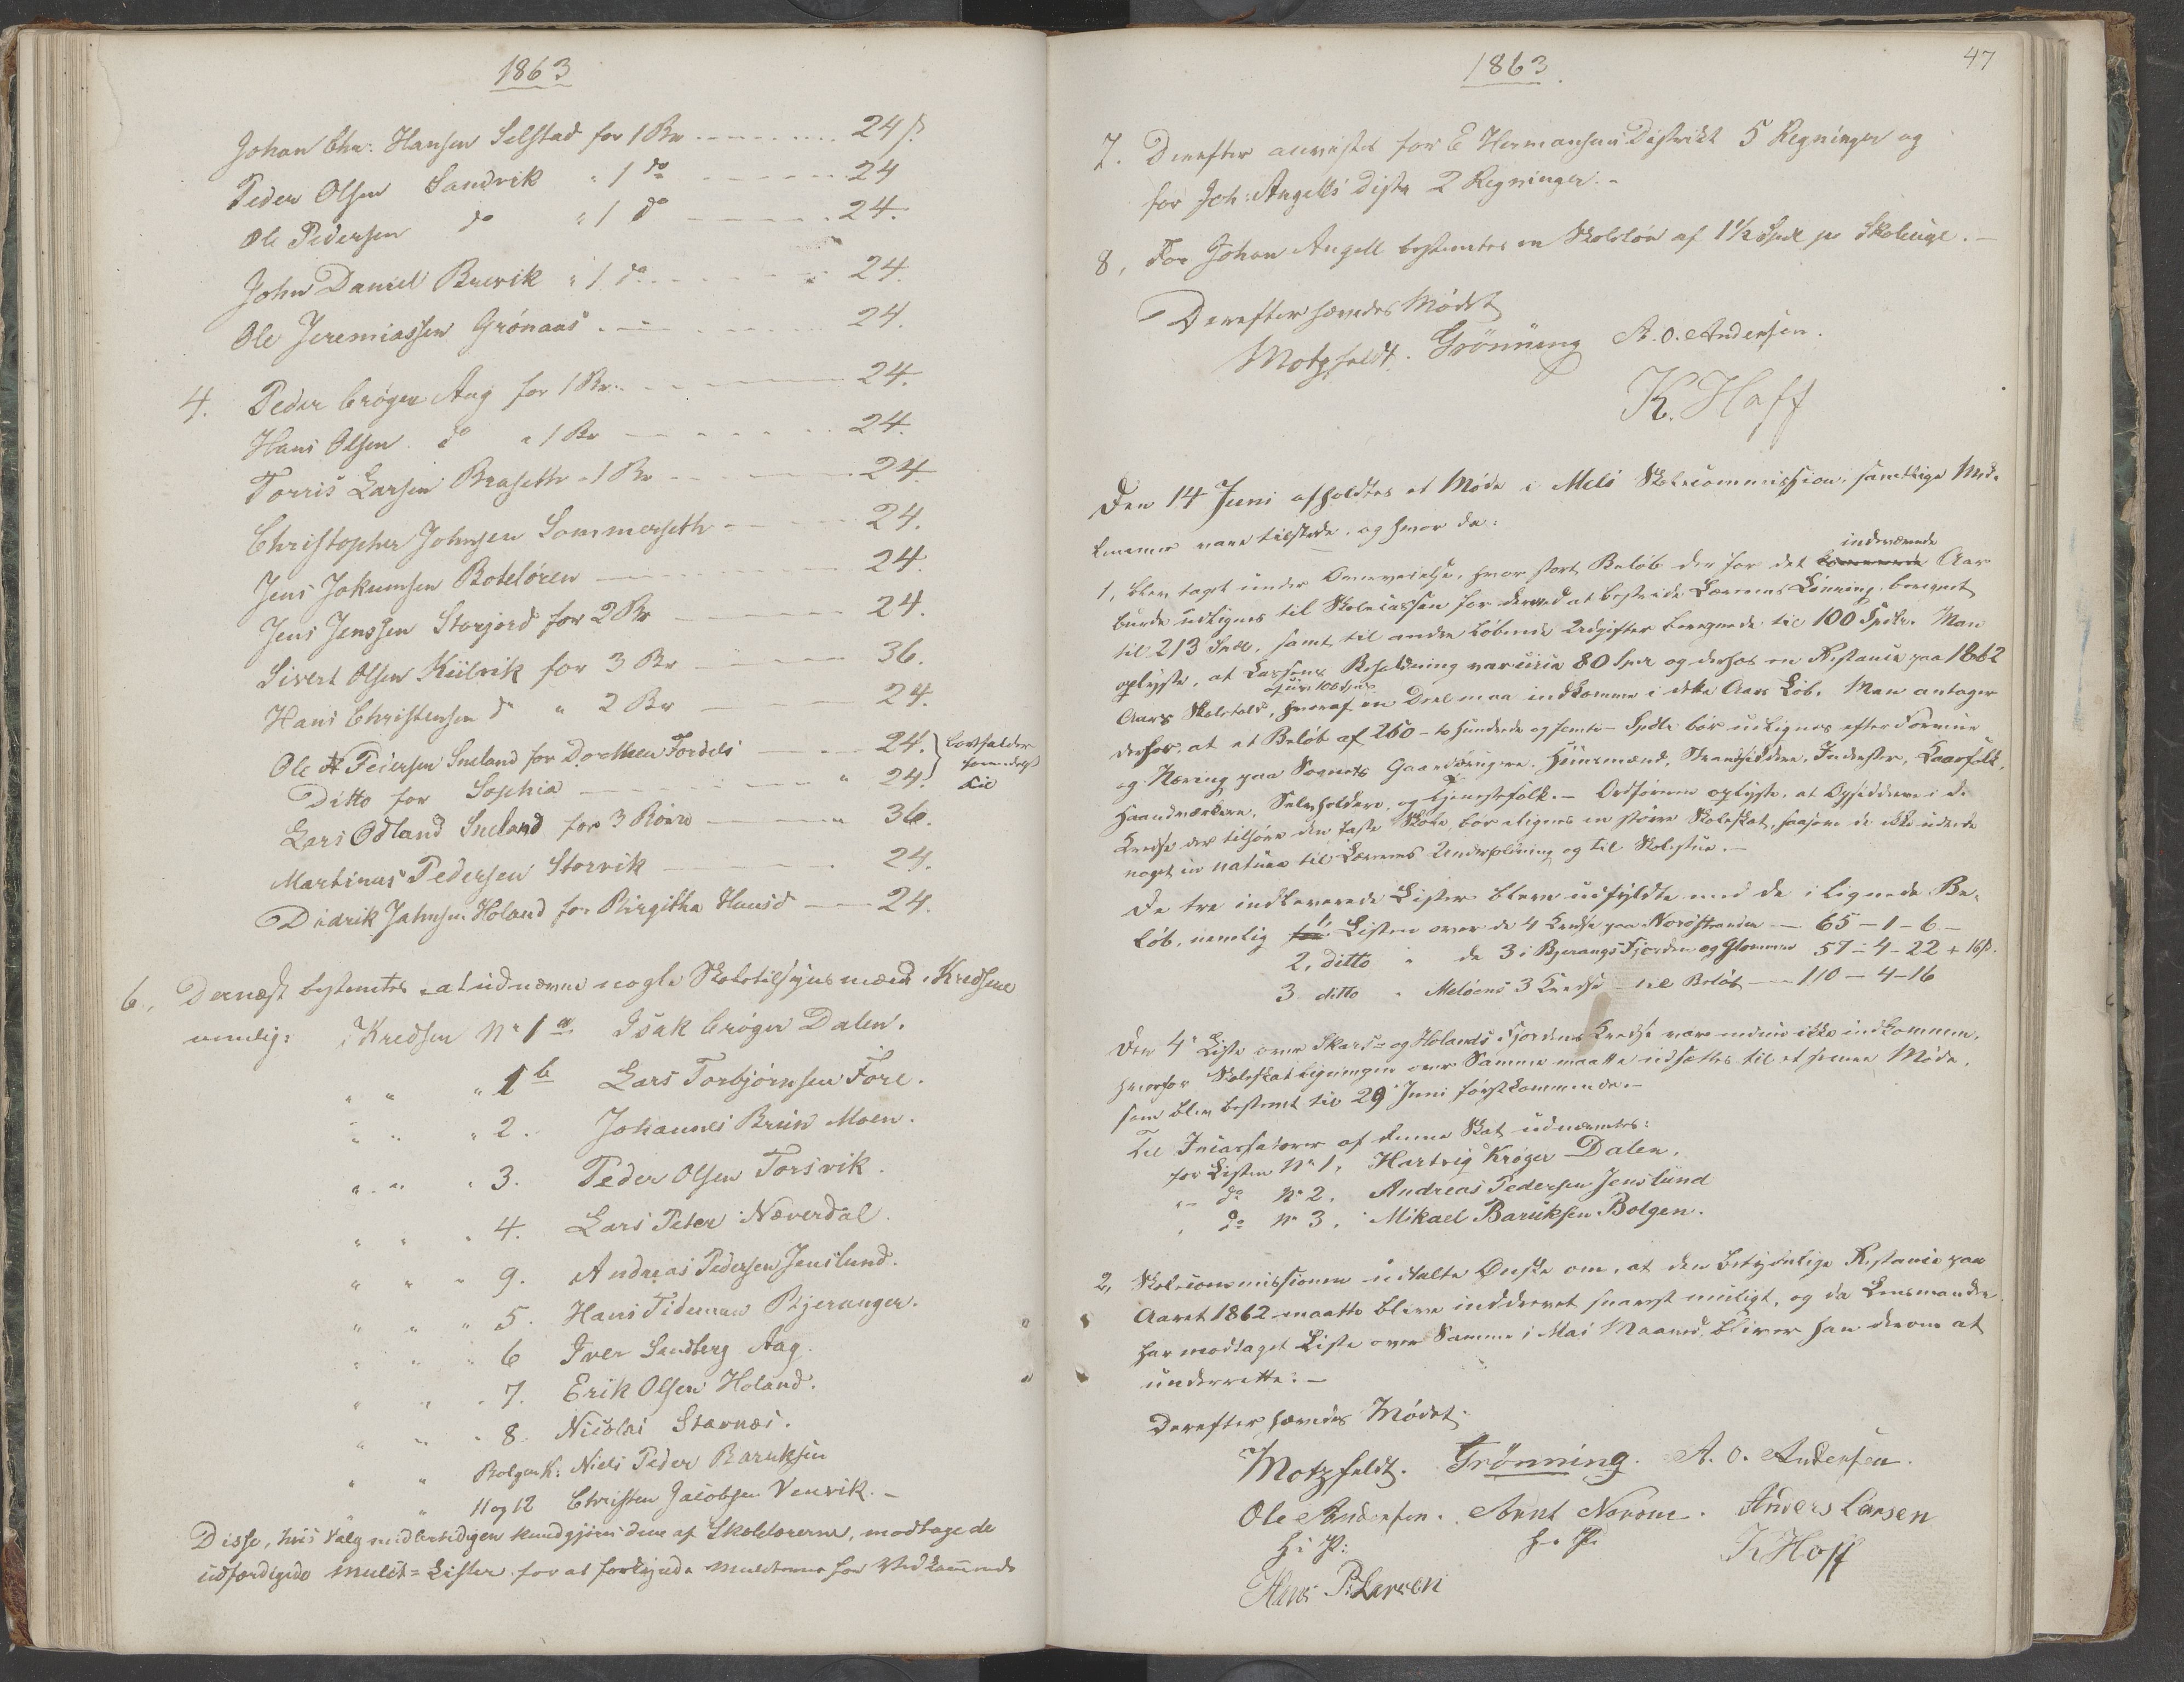 1863
Johan Chr: Hansen Selstad for 1 Br 24 ß.
Peder Olsen Sandvik " 1 do 24
Ole Pedersen do " 1 do 24.
John Daniel Brevik " 1 do 24.
Ole Jeremiassen Grønaas 24.
4. Peder Crøger Aag for 1 Br. 24.
Hans Olsen do " 1 Br 24.
Torris Larsen Braseth " 1 Br 24.
Christopher Johnsen Sommerseth 24.
Jens Jokumsen Boteløren 24.
Jens Jenssen Storjord for 2 Br 24.
Sivert Olsen Kiilvik for 3 Br 36.
Hans Christensen do " 2 Br 24.
Ole Pedersen Sneland for Dorthea Fordels 24.
Ditto for Sophia " 24.
Lars Odland Sneland for 3 Børn 36.
Martinus Pedersen Storvik 24.
Didrik Jahnsen Holand for Birgitha Hansd 24.
6, Dernæst bestemtes at udnævne nogle Skoletilsynsmænd i Kredsene
nemlig: i Kredsen No 1 a Isak Crøger Dalen.
" " " 1 b Lars Torbjørnsen Fore.
" " " 2. Johannes Bruun Moen.
" " " 3. Peder Olsen Torsvik.
" " " 4. Lars Peter Næverdal.
" " " 9. Andreas Pedersen Jenslund.
" " " 5. Hans Tideman Bjeranger.
" " " 6 Iver Sandberg Aag.
" " " 7. Erik Olsen Holand.
" " " 8. Nicolai Stavnæs.
" " Bolgen K: Niels Peder Baruksen
" " 11 og 12 Christen Jacobsen Venvik. -
Disse, hvis Valg midlertidigen kundgjøres dem af Skolelærerne, modtage de
udfærdigede Mulct-Lister for at forkynde Mulcterne for Vedkommende
1863.
47
7. Derefter anvistes for E Hermansens Distrikt 5 Regninger og
for Joh: Angells Distr 2 Regninger. -
8, For Johan Angell bestemtes en Skoleløn af 1½ Spd pr Skoleuge. -
Derefter hævedes Mødet
Motzfeldt. Grønning A. O. Andersen.
K. Hoff
Den 14 Juni afholdtes et Møde i Melø Skolecommission, samtlige Med-
lemmer vare tilstede, og hvor da:
indeværende
1, blev taget under Overveielse, hvor stort Beløb der for det Aar
burde udlignes til Skolecassen for dermed at bestride Lærernes Lønning, beregnet
til 213 Spd, samt til andre løbende Udgifter beregnede til 100 Spdlr. Man
oplyste, at Cassens Beholdning var circa 80 Spd og derhos en Restance paa 1862
Aars Skoleskat, hvoraf en Deel maa indkomme i dette Aars Løb. Man antager
derhos, at et Beløb af 250 - to hundrede og femti - Spdlr bør udlignes efter Formue
og Næring paa Sognets Gaardbrugere, Huusmænd, Strandsiddere, Inderster, Kaarfolk,
Haandværkere, Selvholdere, og Tjenestefolk. - Ordføreren oplyste, at Opsidderne i de
Kredse der tilhøre den faste Skole, bør ilignes en større Skoleskat, saasom de ikke udrede
noget in natura til Lærerens Underholdning og til Skolestue. -
De tre indleverede Lister bleve udfyldte med de ilignede Be-
løb, nemlig 1, Listen over de 4 Kredse paa Nordstranden - 65 - 1 - 6 -
2, ditto " de 3 i Bjerangs Fjorden og Glommen 57 - 4 - 22 + 16ß.
3 ditto " Meløens 3 Kredse til Beløb - 110 - 4 - 16
Den 4de Liste over Skars- og Holands Fjordens Kredse var endnu ikke indkommen,
hvorfor Skoleskatligningen over Samme maatte udsættes til et senere Møde,
som blev bestemt til 29 Juni førstkommende. -
Til Incassatorer af denne Skat udnævntes:
for Listen No 1, Hartvig Krøger Dalen.
" do No 2, Andreas Pedersen Jenslund
" do No 3, Mikael Baruksen Bolgen.
2, Skolecommissionen udtalte Ønske om, at den betydelige Restance paa
Aaret 1862 maatte blive inddrevet snarest muligt, og da Lensmanden
har modtaget Liste over Samme i Mai Maaned, bliver han derom at
underrette: -
Derefter hævedes Mødet.
Motzfeldt. Grønning. A. O. Andersen.
Ole Andersen. Arnt Nordn. Anders Larsen
h: P: h. P.
K Hoff
Hans P. Larsen